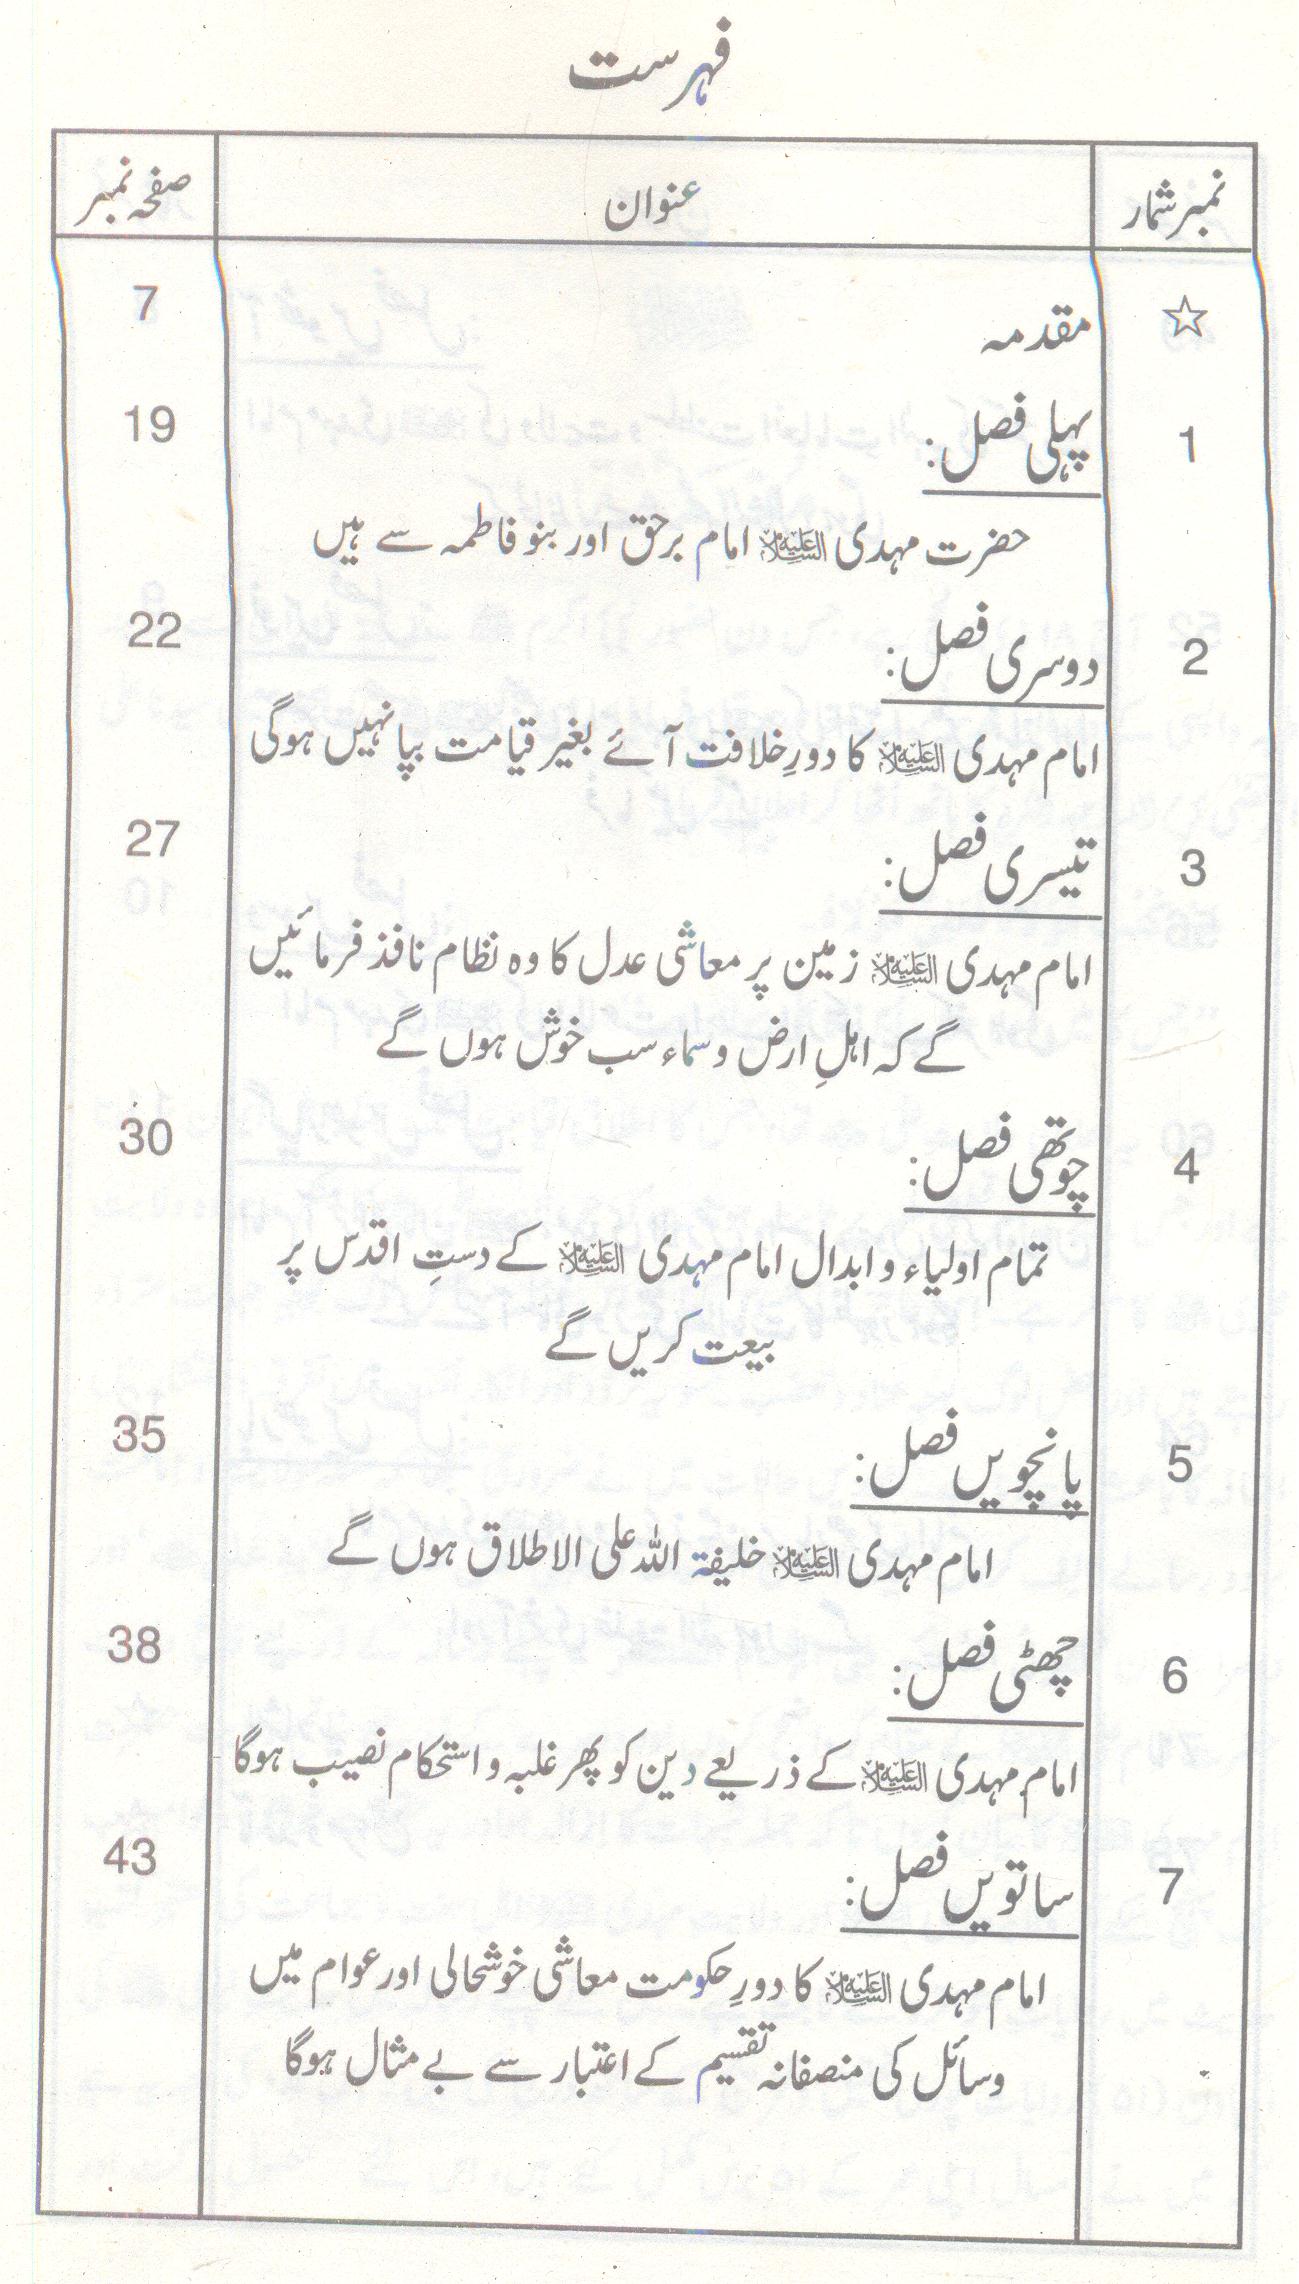 فہرست
نمبر شمار عنوان صفحہ نمبر
☆ مقدمہ 7
1 پہلی فصل: 19
حضرت مہدی علیہ السلام امام برحق اور بنو فاطمہ سے ہیں
2 دوسری فصل: 22
امام مہدی علیہ السلام کا دورِ خلافت آئے بغیر قیامت بپا نہیں ہوگی
3 تیسری فصل: 27
امام مہدی علیہ السلام زمین پر معاشی عدل کا وہ نظام نافذ فرمائیں
گے کہ اہلِ ارض و سماء سب خوش ہوں گے
4 چوتھی فصل: 30
تمام اولیاء و ابدال امام مہدی علیہ السلام کے دستِ اقدس پر
بیعت کریں گے
5 پانچویں فصل: 35
امام مہدی علیہ السلام خلیفۃ اللہ علی الاطلاق ہوں گے
6 چھٹی فصل: 38
امام مہدی علیہ السلام کے ذریعے دین کو پھر غلبہ و استحکام نصیب ہوگا
7 ساتویں فصل: 43
امام مہدی علیہ السلام کا دورِ حکومت معاشی خوشحالی اور عوام میں
وسائل کی منصفانہ تقسیم کے اعتبار سے بے مثال ہوگا